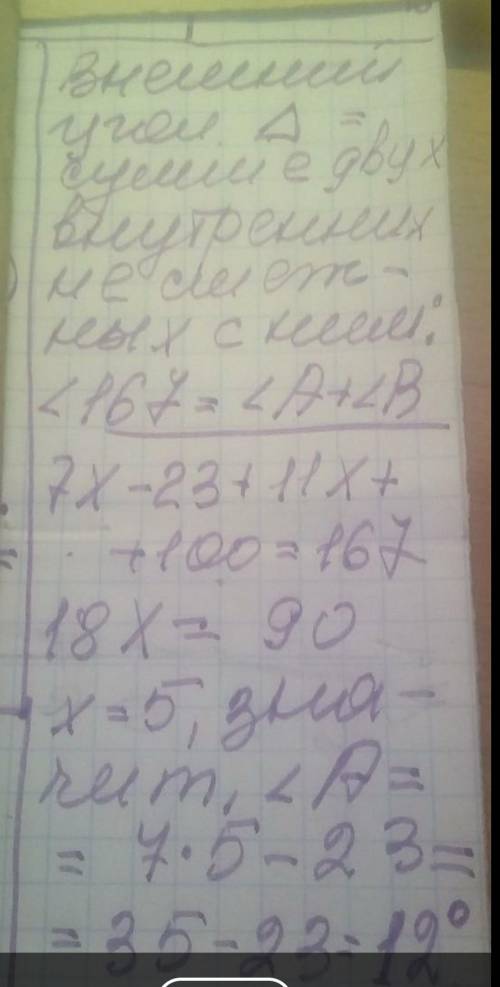 Внешний
угол Δ =
сумме двух
внутренних
не смеж-
ных с ним:
<167 = <A+<B
7x-23+11x+
+100=167
18x = 90
x=5, зна-
чит, <A=
= 7·5-23=
=35-23=12°